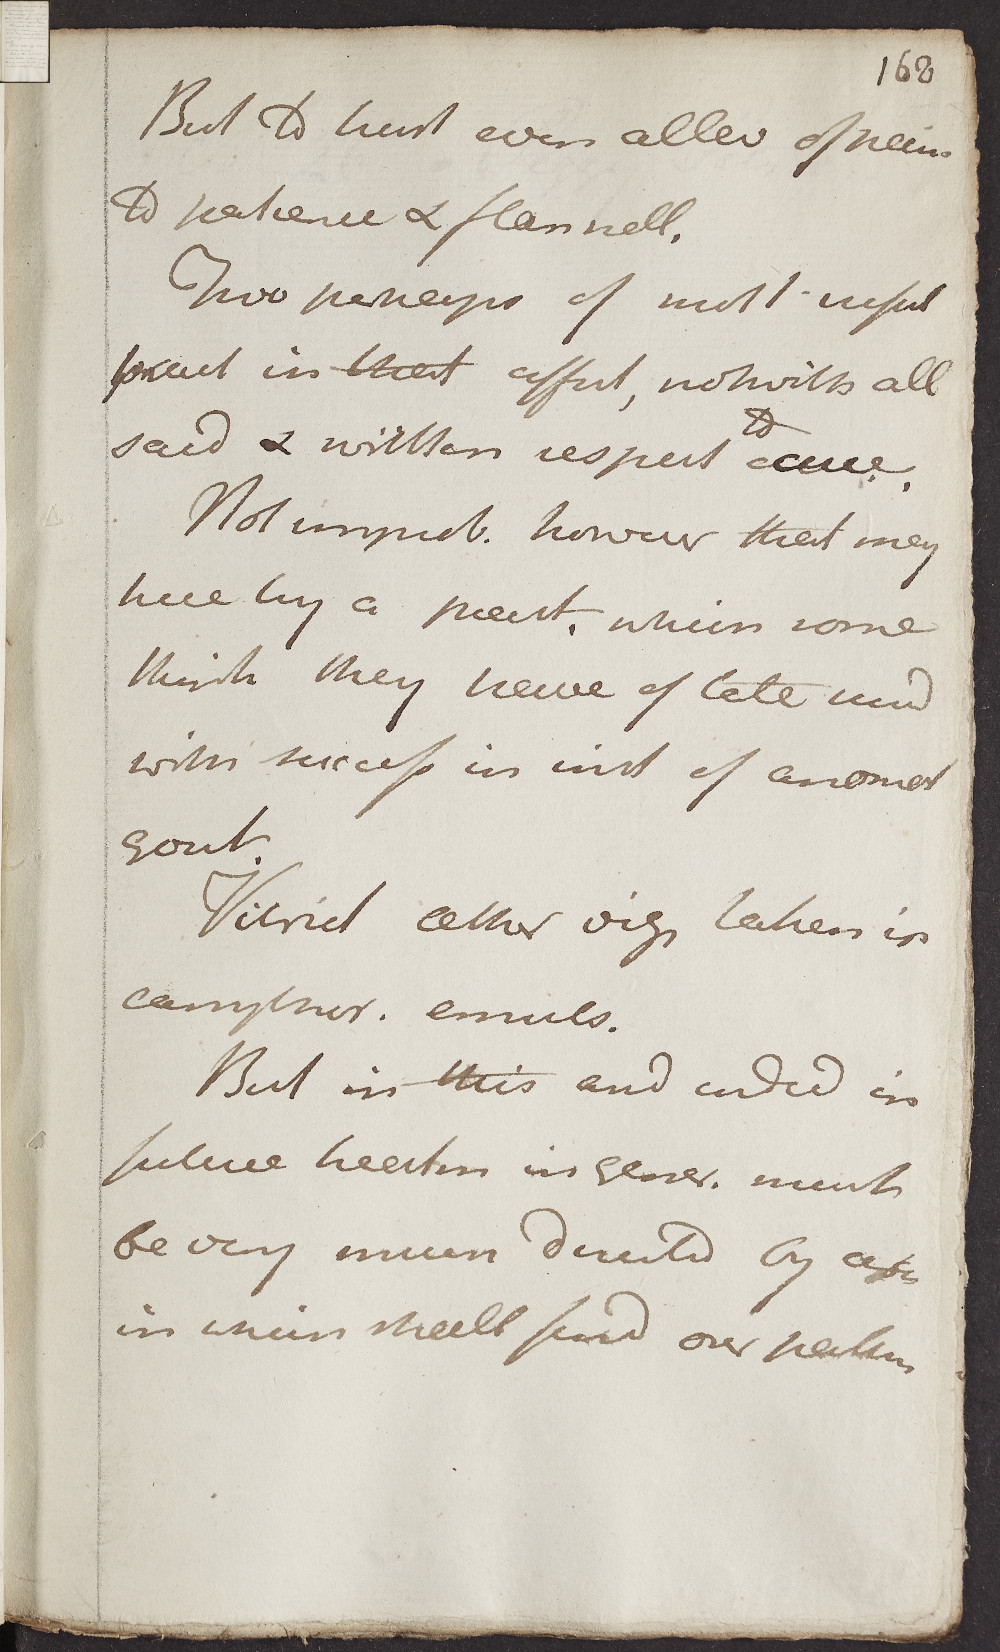 168
But to trust even allev of pain
to patience & flannell.
Two perhaps of most useful
pract in that affect, notwith all
said & written respect to cure.
Not improb. however that may
have by a pract. which some
think they have of late used
with success in inst of anomal
gout.
Vitriol æther vig taken in
camphor. emuls.
But in this and indeed in
future treatm in gener. must
be very much directed by
in which shall find our patien